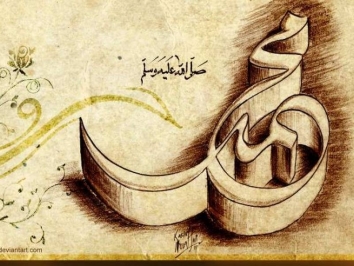 صَلَّى اللهُ عَلَيْهِ وَسَلَّمَ
محمد
deviantart.com